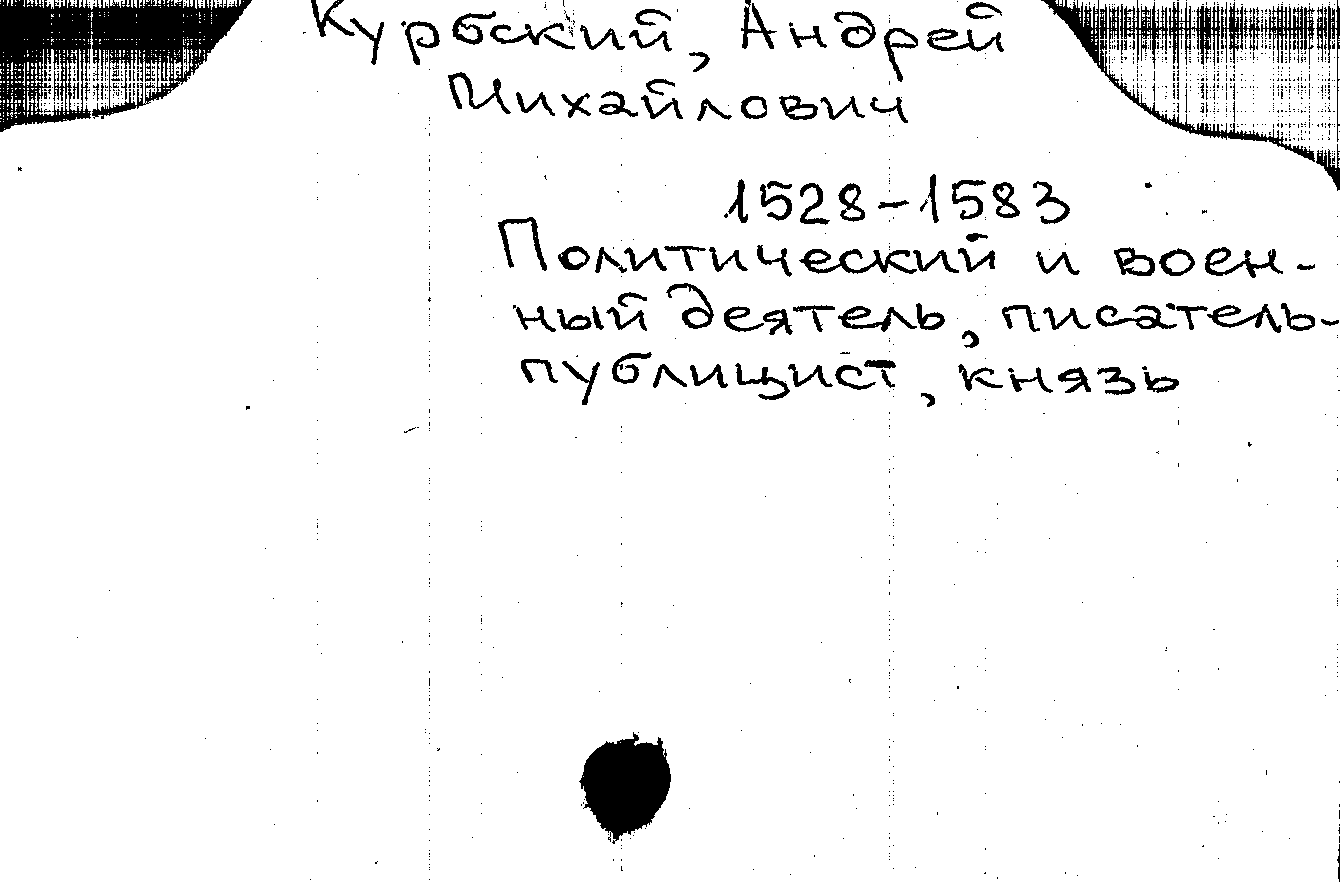 Курбский, Андрей
Михайлович
1528-1583
Политический и воен-
ный деятель, писатель-
публицист, князь